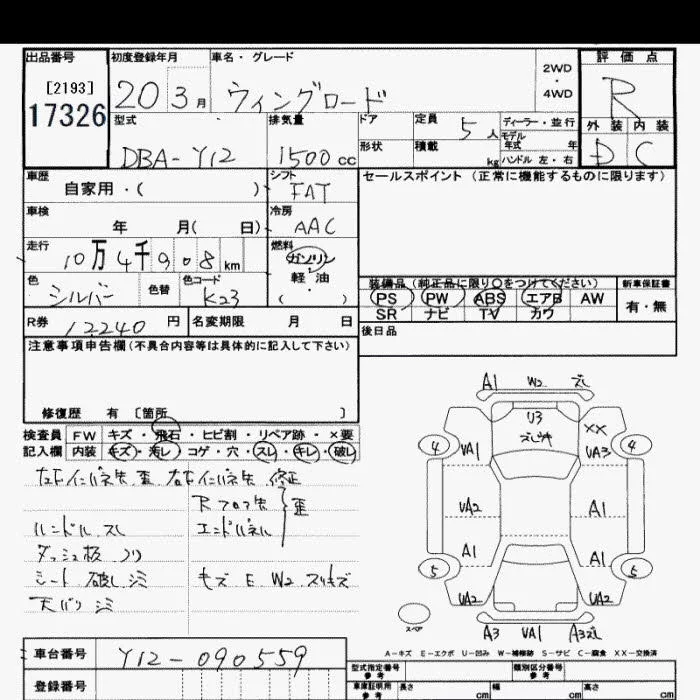 出品番号 初度登録年月 車名・グレード 評価点
[2193]
17326
20 3月 ウィングロード
2WD
・
4WD
R
外装 内装
D C
型式 排気量 ドア 定員 5人 ディーラー・並行
モデル年式 年
DBA-Y12 1500cc 形状 積載 kg ハンドル 左・右
車歴 シフト セールスポイント(正常に機能するものに限ります)
自家用・( ) FAT
車検 冷房
年 月( 日) AAC
走行 燃料
10万4千908km ガソリン
軽油
( )
色 色替 色コード
シルバー K23
装備品(純正品に限り〇をつけてください) 新車保証書
PS PW ABS エアB AW 有・無
SR ナビ TV カワ
R券 12240円 名変期限 月 日
後日品
注意事項申告欄(不具合内容等は具体的に記入して下さい)
修復歴 有 〔箇所 〕
検査員 FW キズ・飛石・ヒビ割・リペア跡・×要
記入欄 内装 キズ・汚レ・コゲ・穴・スレ・キレ・破レ
Rフロア先 歪
ハンドル スレ エンドパネル
ダッシュ板 ノリ
シート 破レ シミ キズ E W2 スリキズ
天バリ シミ
A1 W2 ズレ
リ3
XX
4 UA1 UA3 4
UA2 A1
A1 A1
5 5
UA2 UA2
スペア
A3 UA1 A3ズレ
A-キズ E-エクボ U-凹み W-補修跡 S-サビ C-腐食 XX-交換済
車台番号 Y12-090559
登録番号
型式指定番号 参考 類別区分番号 参考
車庫証明用 参考 長さ cm 幅 cm 高さ cm